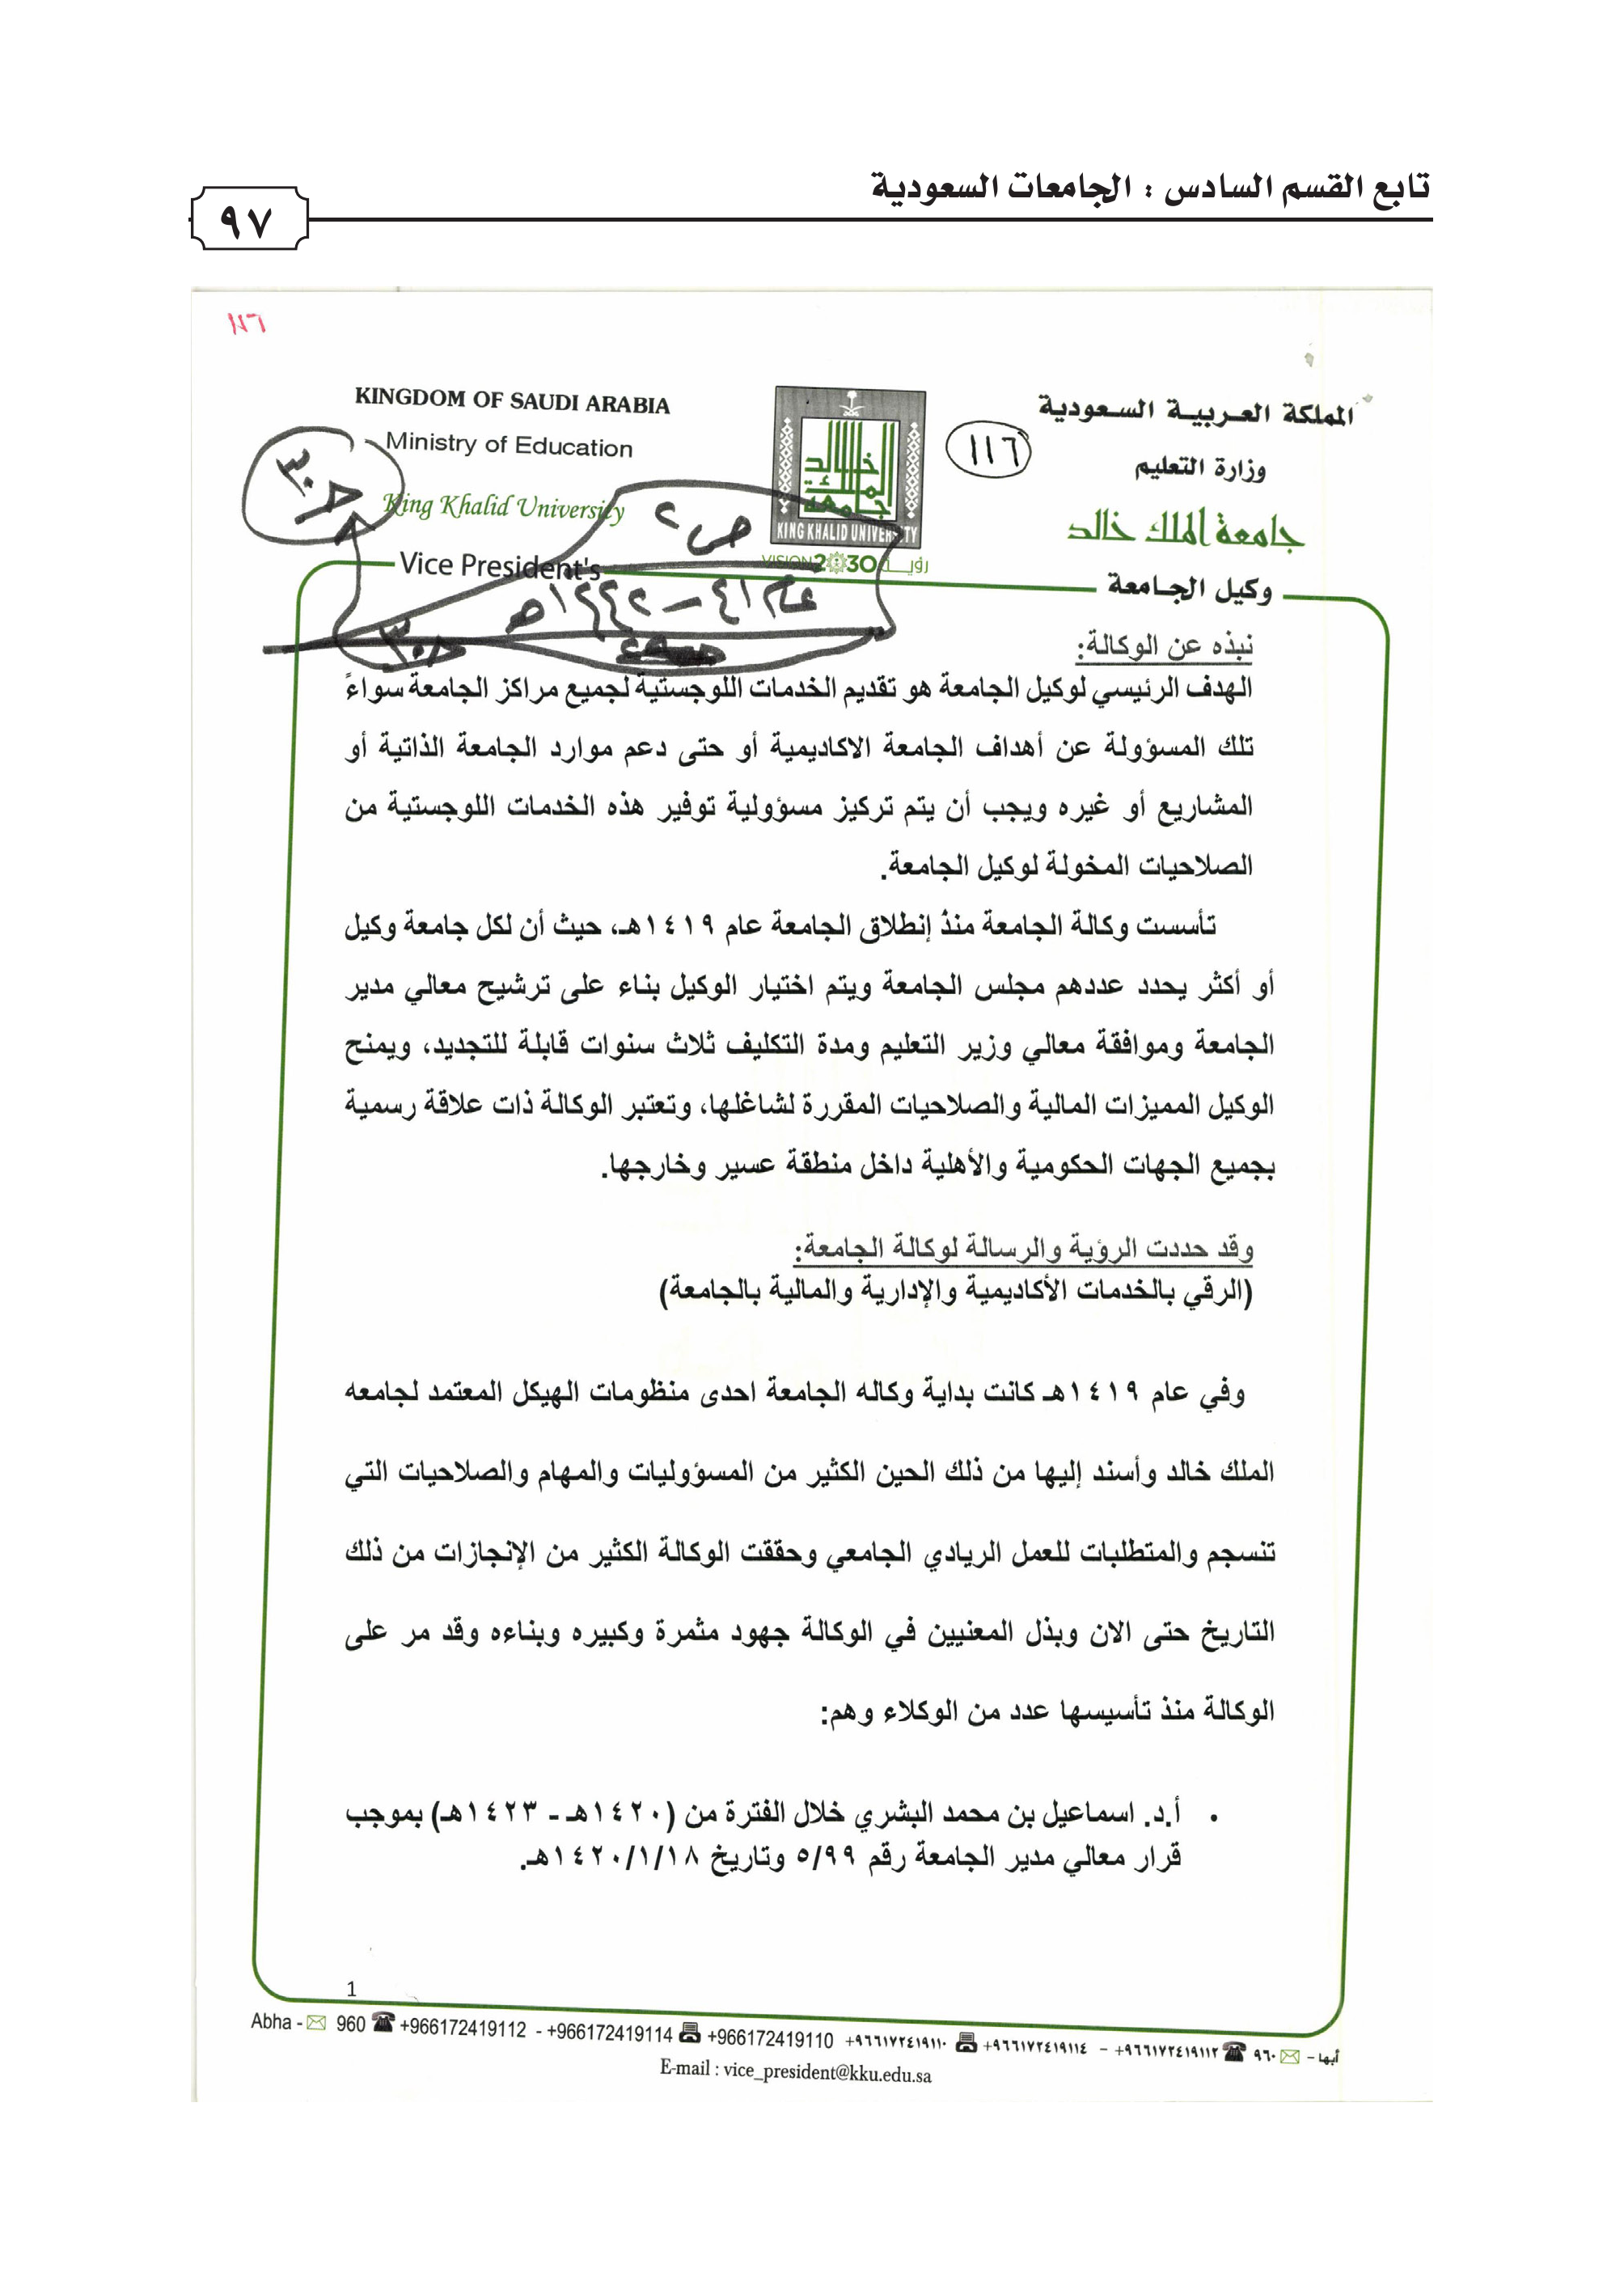 تابع القسم السادس : الجامعات السعودية
٩٧
١١٦
KINGDOM OF SAUDI ARABIA
Ministry of Education
King Khalid University
Vice President's
KING KHALID UNIVERSITY
VISION 2030 رؤيـــة
١١٦
المملكة العربيـة السـعودية
وزارة التعليم
جامعة الملك خالد
وكيل الجـامعة
ص ٢
عام ٤١ – ١٤٤٢هـ
ج٣٠
ج٣٠
نبذه عن الوكالة:
الهدف الرئيسي لوكيل الجامعة هو تقديم الخدمات اللوجستية لجميع مراكز الجامعة سواءً
تلك المسؤولة عن أهداف الجامعة الاكاديمية أو حتى دعم موارد الجامعة الذاتية أو
المشاريع أو غيره ويجب أن يتم تركيز مسؤولية توفير هذه الخدمات اللوجستية من
الصلاحيات المخولة لوكيل الجامعة.
تأسست وكالة الجامعة منذُ إنطلاق الجامعة عام ١٤١٩هـ، حيث أن لكل جامعة وكيل
أو أكثر يحدد عددهم مجلس الجامعة ويتم اختيار الوكيل بناء على ترشيح معالي مدير
الجامعة وموافقة معالي وزير التعليم ومدة التكليف ثلاث سنوات قابلة للتجديد، ويمنح
الوكيل المميزات المالية والصلاحيات المقررة لشاغلها، وتعتبر الوكالة ذات علاقة رسمية
بجميع الجهات الحكومية والأهلية داخل منطقة عسير وخارجها.
وقد حددت الرؤية والرسالة لوكالة الجامعة:
(الرقي بالخدمات الأكاديمية والإدارية والمالية بالجامعة)
وفي عام ١٤١٩هـ كانت بداية وكاله الجامعة احدى منظومات الهيكل المعتمد لجامعه
الملك خالد وأسند إليها من ذلك الحين الكثير من المسؤوليات والمهام والصلاحيات التي
تنسجم والمتطلبات للعمل الريادي الجامعي وحققت الوكالة الكثير من الإنجازات من ذلك
التاريخ حتى الان وبذل المعنيين في الوكالة جهود مثمرة وكبيره وبناءه وقد مر على
الوكالة منذ تأسيسها عدد من الوكلاء وهم:
• أ.د. اسماعيل بن محمد البشري خلال الفترة من (١٤٢٠هـ - ١٤٢٣هـ) بموجب
قرار معالي مدير الجامعة رقم ٥/٩٩ وتاريخ ١٤٢٠/١/١٨هـ.
1
Abha - 960 +966172419112 - +966172419114 +966172419110 +٩٦٦١٧٢٤١٩١١٠ +٩٦٦١٧٢٤١٩١١٤ – +٩٦٦١٧٢٤١٩١١٢ ٩٦٠ – أبها
E-mail : vice_president@kku.edu.sa